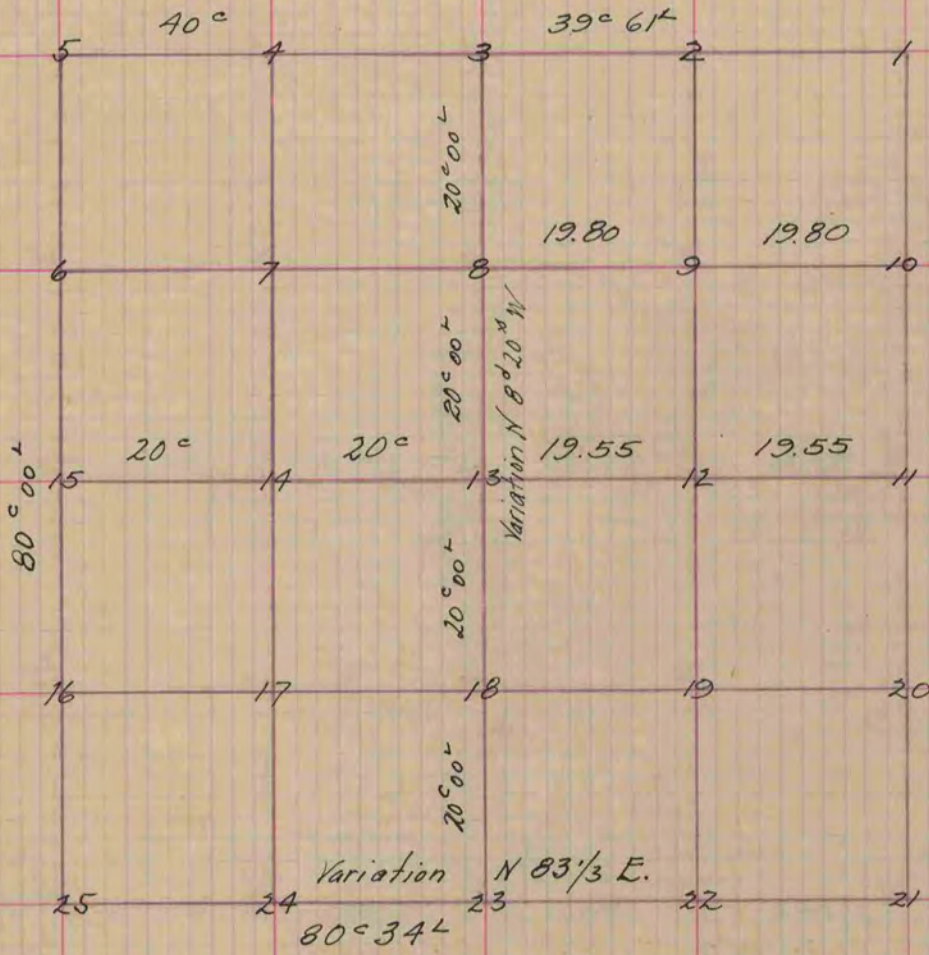 40 c 39 c 61 L
5 4 3 2 1
20 c 00 L
19.80 19.80
6 7 8 9 10
20 c 00 L
Variation N 8 d 20 W
20 c 20 c 19.55 19.55
80 c 00 L
15 14 13 12 11
20 c 00 L
16 17 18 19 20
20 c 00 L
Variation N 83 1/3 E.
25 24 23 22 21
80 c 34 L